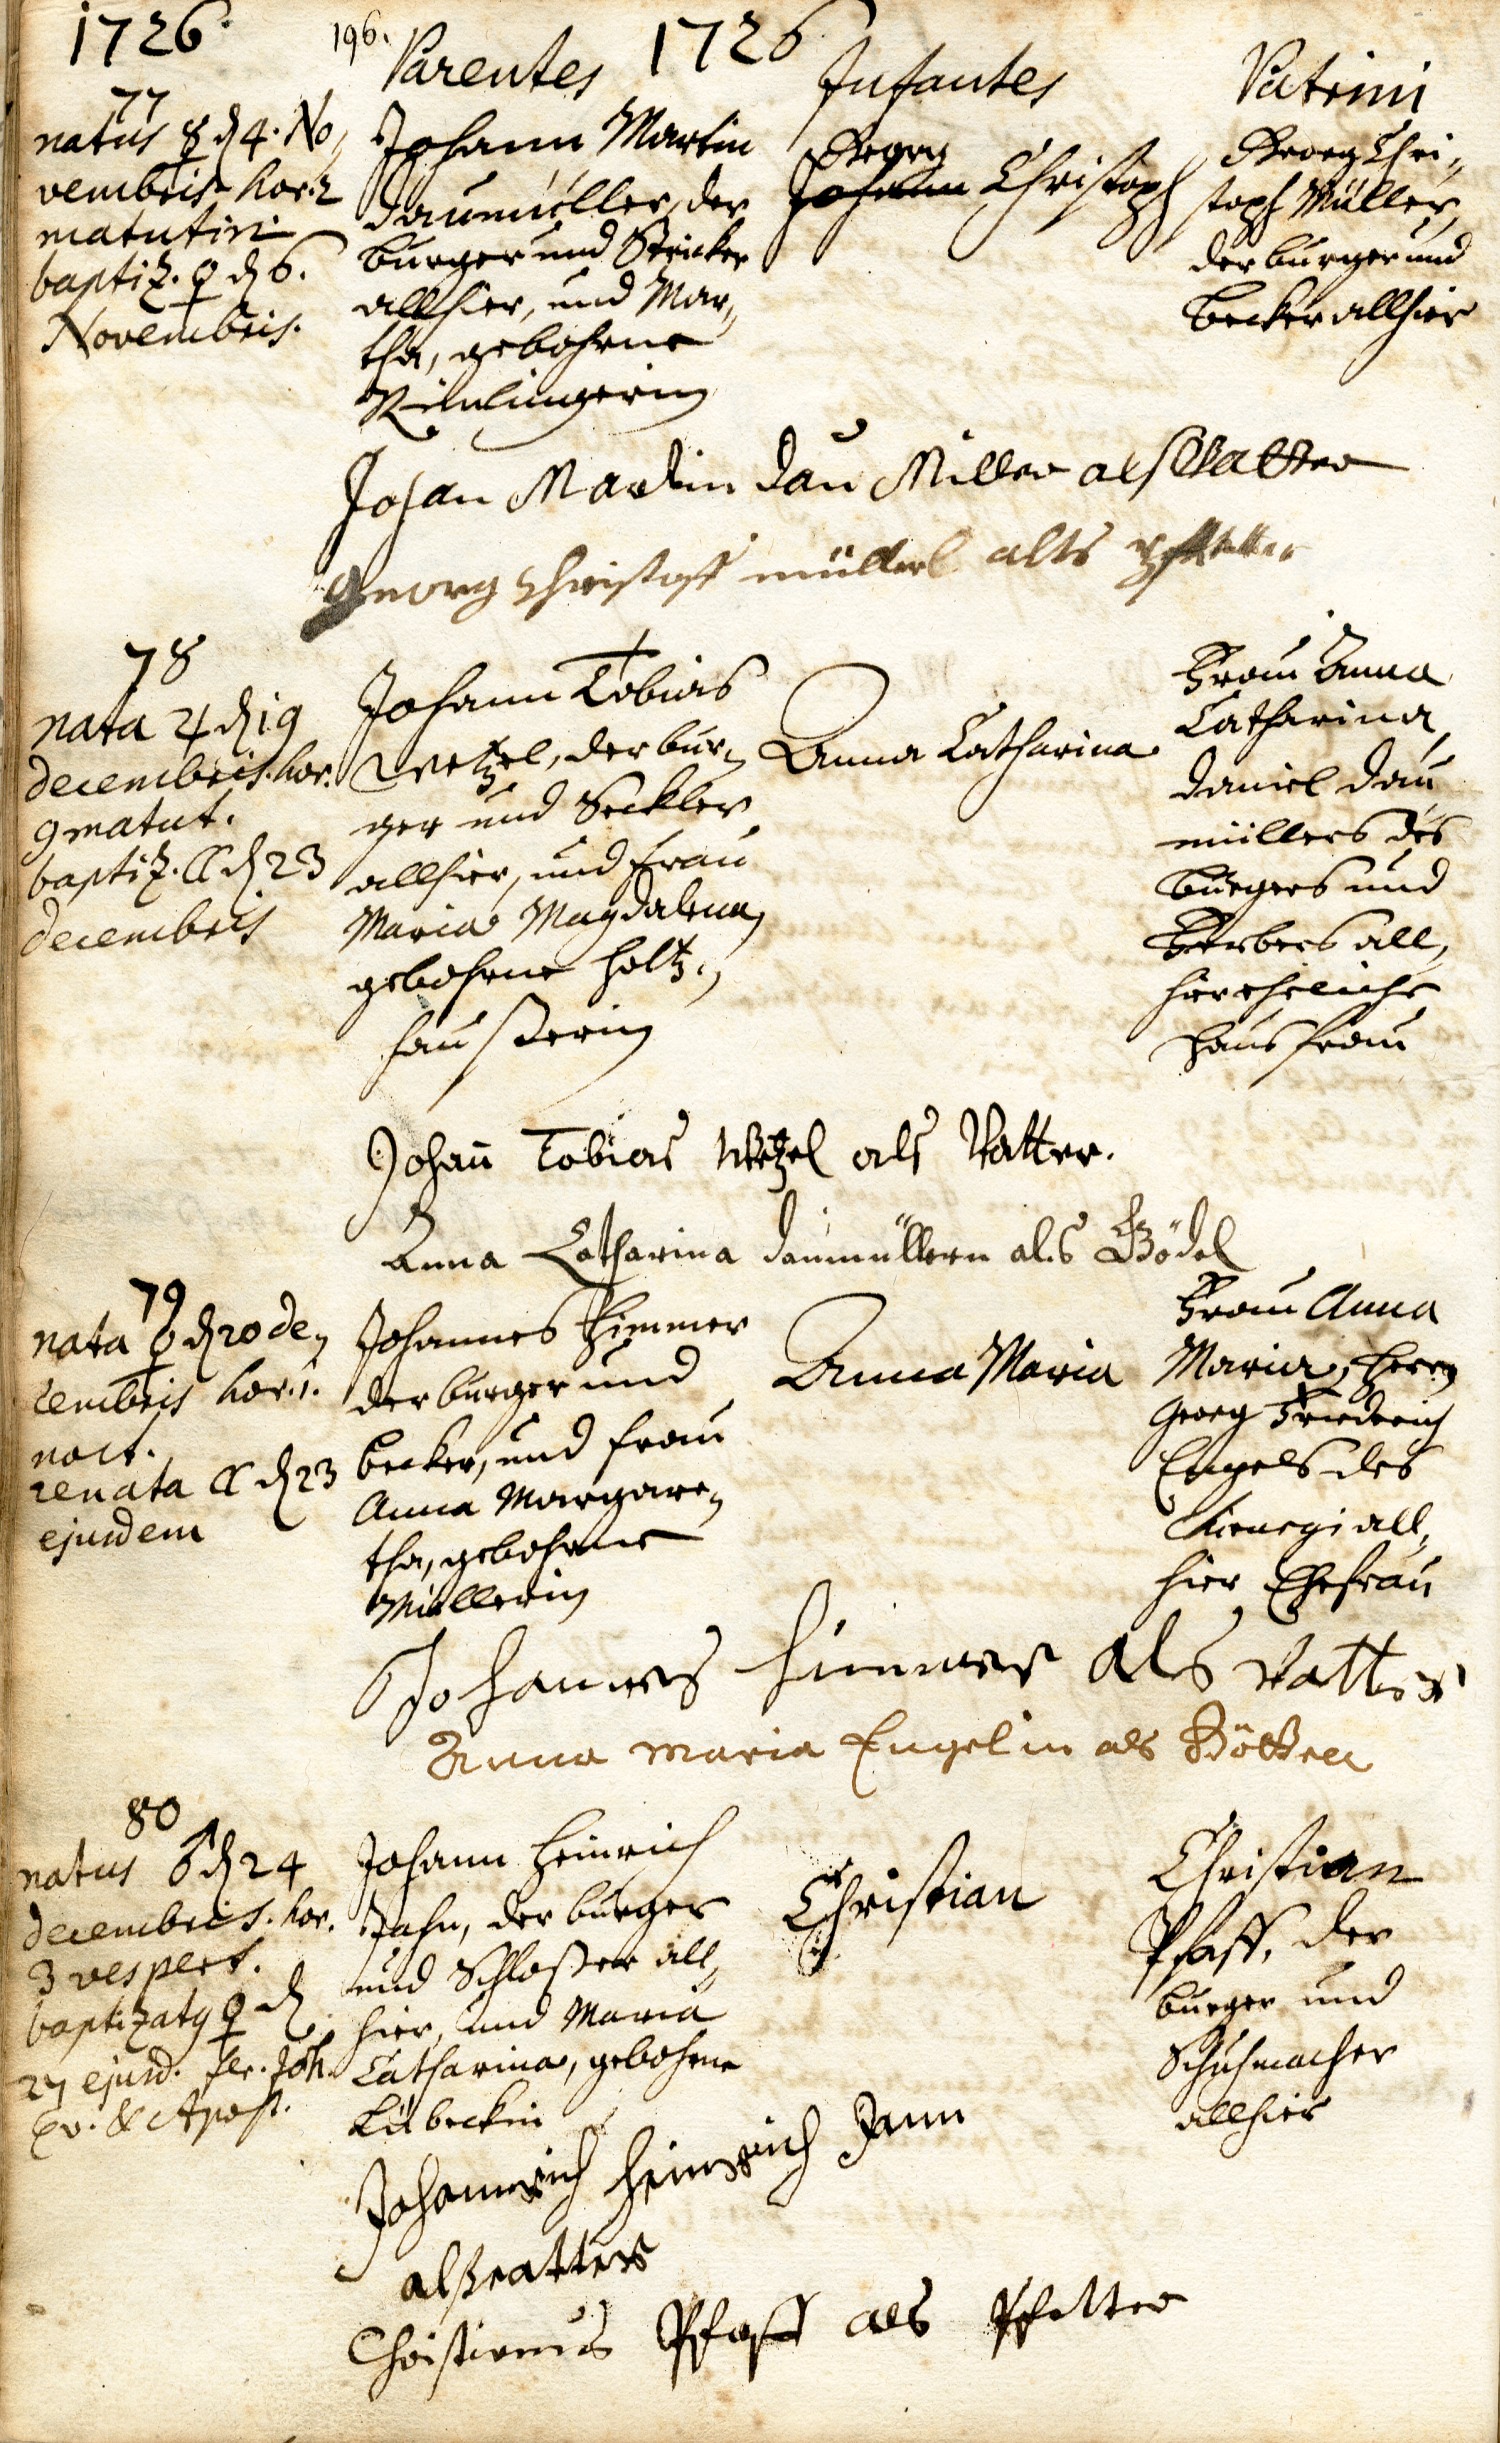 1726.
196.
Parentes 1726 Infantes Patrini
77
natus ☿ d 4. No,
vembris hor. 2
matutin
baptiz. ♀ d 6.
Novembris.
Johann Martin
Daumüller, der
burger und Stricker
allhier, und Mar,
tha, gebohrne
Georg
Johann Christoph
Georg Chri,
stoph Müller,
der burger und
becker allhier
Johan Martin dau Miller als Vatter
Georg Christoff müllerl alts
78
nata ♃ d 19
decembris. hor.
9 matut.
baptiz. ☾ d 23
decembris
Johann Tobias
Wetzel, der bur,
ger und Seckler
allhier, und frau
Maria Magdalena,
gebohrne holtz,
haußerin
Anna Catharina
Frau Anna
Catharina,
Daniel Dau
müllers des
burgers und
Gerbers all,
hier eheliche
Hausfrau
Johan̄ Tobias Wetzel als Vatter.
Anna Catharina daumüllern als Gödel
79
nata ♀ d 20 de,
cembris hor. 1.
noct.
renata ☾ d 23
ejusdem
Johannes Himmer
der burger und
becker, und frau
Anna Margare,
tha, gebohrne
Müllerin
Anna Maria
Frau Anna
Maria, Herrn
Georg Friedrich
Engels des
Chirurgi all,
hier Ehefrau
Johannes Himmer als Vatter
Anna Maria Engelin als Götten
80
natus ♂ d 24
decembris. hor.
3 vespert.
baptizatus ♀ d
27 ejusd. fer. Joh.
Ev. & Apost.
Johann Heinrich
Jahn, der burger
und Schloßer all,
hier, und Maria
Catharina, gebohrne
Lübeckin
Christian
Christian
Pfaff, der
burger und
Schuhmacher
allhier
Heinrich Jann
als vatter
Christianus Pfaff als Pfetter